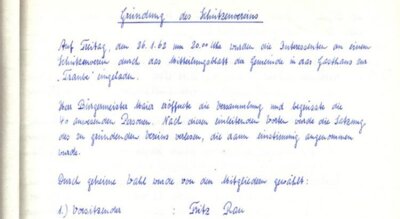 Gründung des Schützenvereins
Auf Freitag, den 26.1.62 um 20.00 Uhr wurden die Interessenten an einem
Schützenverein durch das Mitteilungsblatt der Gemeinde in das Gasthaus zur
"Traube" eingeladen.
Herr Bürgermeister Maier eröffnete die Versammlung und begrüsste die
40 anwesenden Personen. Nach diesen einleitenden Worten wurde die Satzung
des zu gründenden Vereins verlesen, die dann einstimmig angenommen
wurde.
Durch geheime Wahl wurde von den Mitgliedern gewählt:
1.) Vorsitzender : Fritz Rau